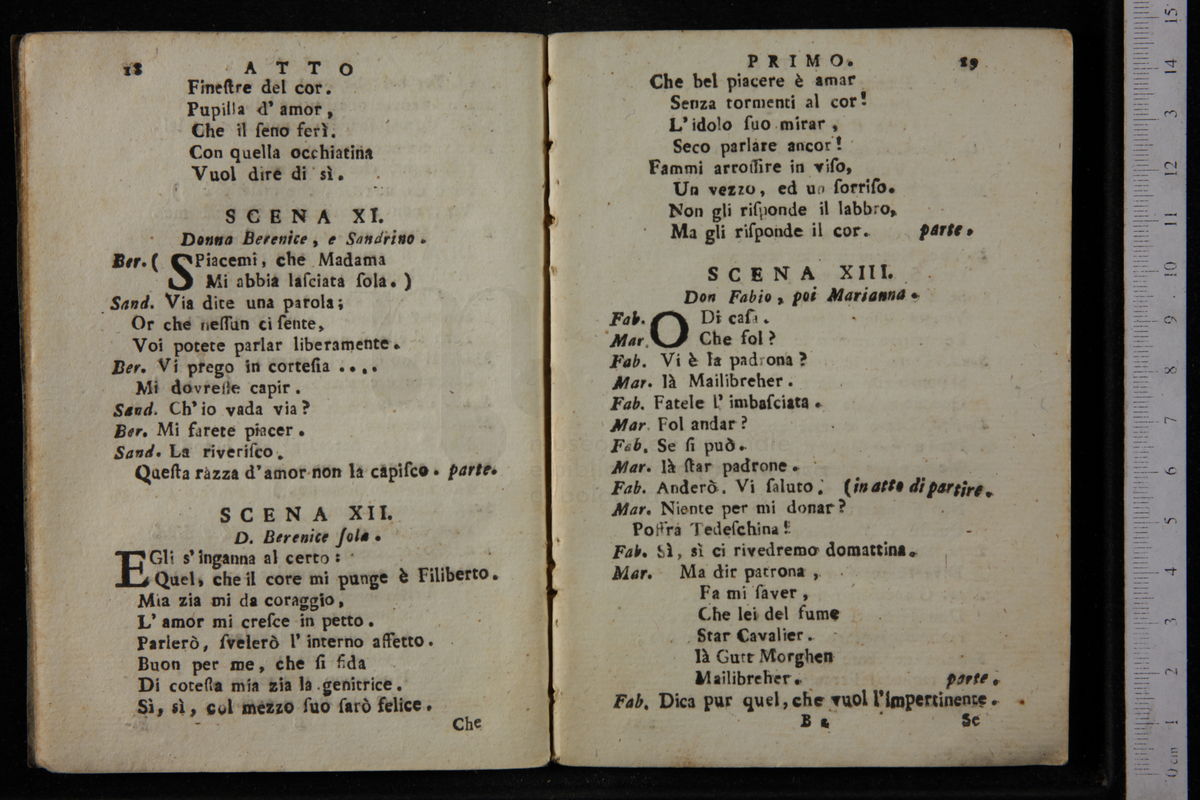 18 ATTO
Fineſtre del cor.
Pupilla d' amor,
Che il ſeno ferì.
Con quella occhiatina
Vuol dire di sì.
SCENA XI.
Donna Berenice, e Sandrino.
Ber. ( SPiacemi, che Madama
Mi abbia laſciata ſola. )
Sand. Via dite una parola;
Or che neſſun ci ſente,
Voi potete parlar liberamente.
Ber. Vi prego in corteſia ....
Mi dovreſte capir.
Sand. Ch' io vada via?
Ber. Mi farete piacer.
Sand. La riveriſco.
Queſta razza d'amor non la capiſco. parte.
SCENA XII.
D. Berenice ſola.
EGli s' inganna al certo:
Quel, che il core mi punge è Filiberto.
Mia zia mi da coraggio,
L' amor mi creſce in petto.
Parlerò, ſvelerò l' interno affetto.
Buon per me, che ſi fida
Di coteſta mia zia la genitrice.
Sì, sì, col mezzo ſuo ſarò felice.
Che
PRIMO. 19
Che bel piacere è amar
Senza tormenti al cor!
L' idolo ſuo mirar,
Seco parlare ancor!
Fammi arroſſire in viſo,
Un vezzo, ed un ſorriſo.
Non gli riſponde il labbro,
Ma gli riſponde il cor. parte.
SCENA XIII.
Don Fabio, poi Marianna.
Fab. ODi caſa.
Mar. Che fol?
Fab. Vi è la padrona?
Mar. Ià Mailibreher.
Fab. Fatele l' imbaſciata.
Mar. Fol andar?
Fab. Se ſi può.
Mar. Ià ſtar padrone.
Fab. Anderò. Vi ſaluto. (in atto di partire.
Mar. Niente per mi donar?
Poſſra Tedeſchina!
Fab. Sì, sì ci rivedremo domattina.
Mar. Ma dir patrona,
Fa mi ſaver,
Che lei del fume
Star Cavalier.
Ià Gutt Morghen
Mailibreher. parte.
Fab. Dica pur quel, che vuol l'impertinente.
B 2 Se
0 cm 1 2 3 4 5 6 7 8 9 10 11 12 13 14 15